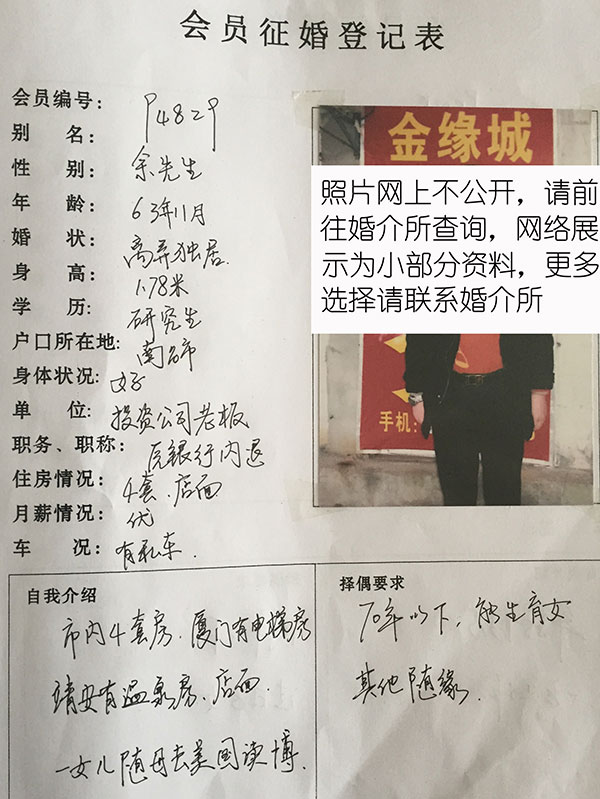 会员征婚登记表
会员编号: P4829
别 名: 余先生
性 别:
年 龄: 63年11月
婚 状: 离异独居
身 高: 1.78米
学 历: 研究生
户口所在地: 南昌市
身体状况: 好
单 位: 投资公司老板
职务、职称: 原银行内退
住房情况: 4套.店面
月薪情况: 优
车 况: 有私车.
金缘城
照片网上不公开，请前
往婚介所查询，网络展
示为小部分资料，更多
选择请联系婚介所
手机:
自我介绍
市内4套房.厦门有电梯房
靖安有温泉房.店面.
一女儿随母去美国读博.
择偶要求
70年以下，能生育女
其他随缘.